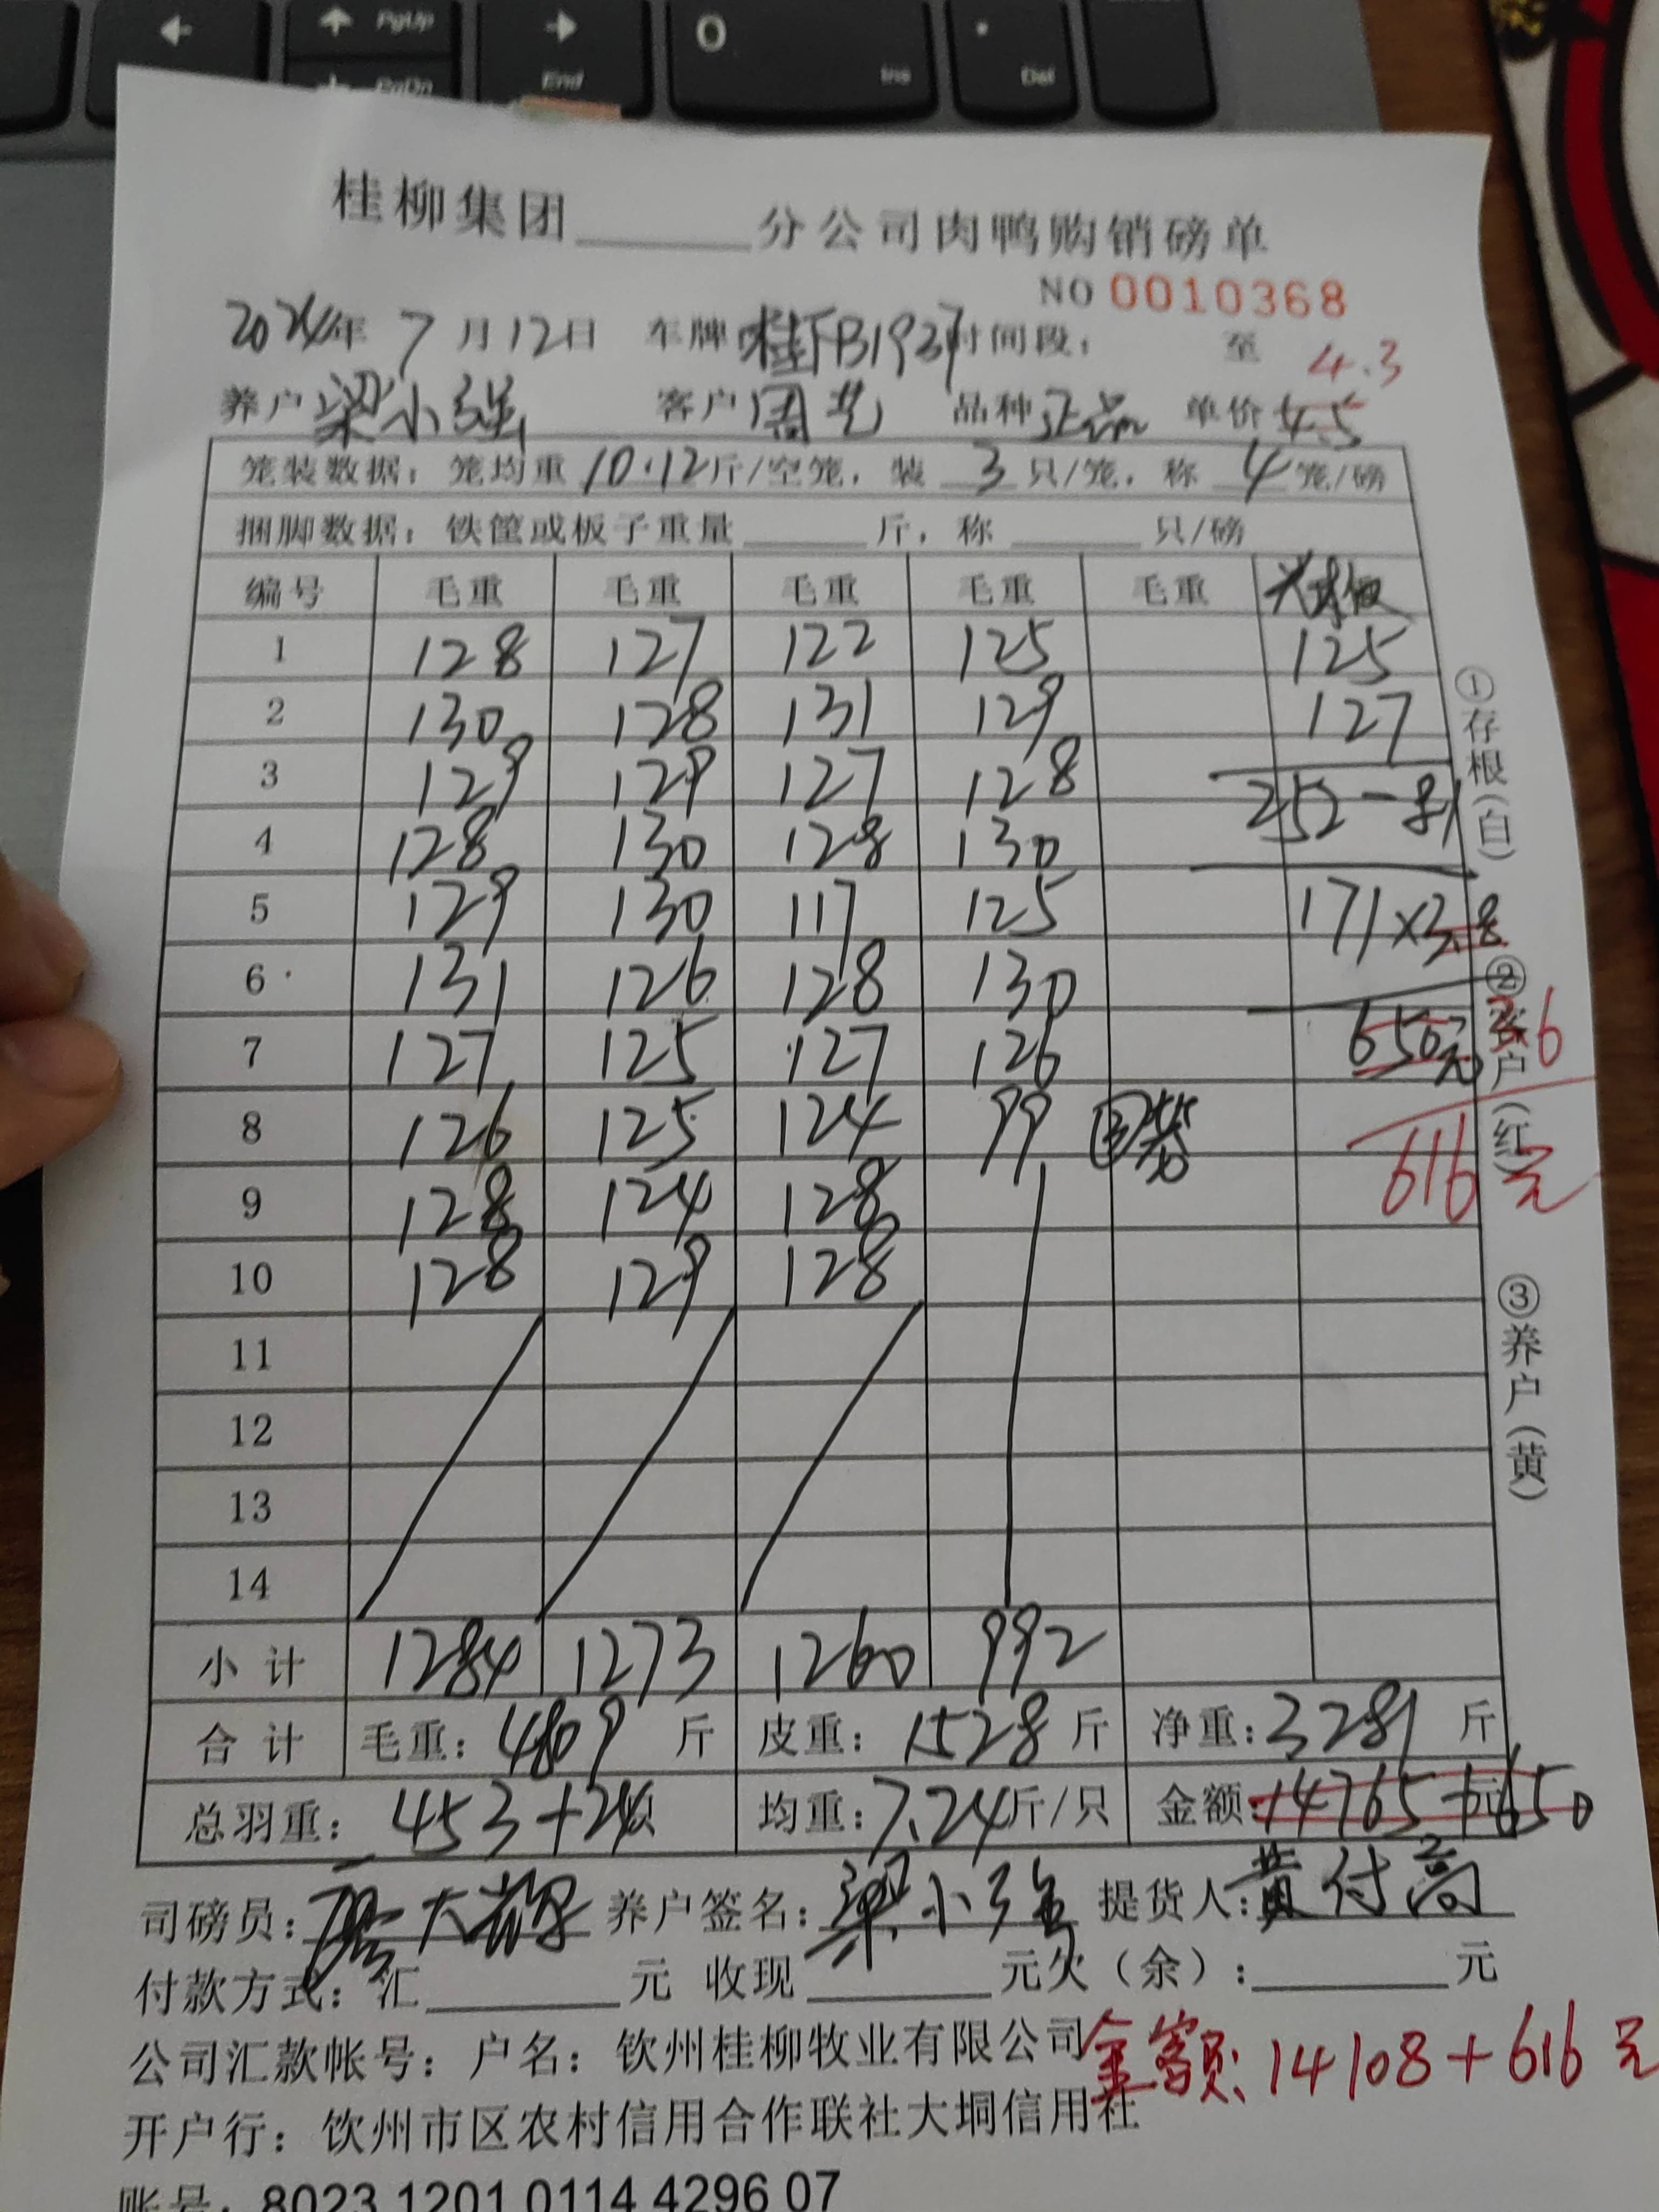 PgUp
PgDn
End
0
Ins
.
Del
桂柳集团______分公司肉鸭购销磅单
NO 0010368
2024年 7月12日 车牌 桂FB1937 时间段: 至
4.3
养户 梁小强 客户 周艺 品种 正品 单价 4.5
笼装数据: 笼均重 10.12斤/空笼, 装 3 只/笼, 称 4 笼/磅
捆脚数据: 铁筐或板子重量______斤, 称______只/磅
编号 毛重 毛重 毛重 毛重 毛重
1 128 127 122 125 125
2 130 128 131 129 127
3 129 129 127 128 252-81
4 128 130 128 130
5 129 130 117 125 171×3.8
6 131 126 128 130
7 127 125 127 126 650元 3.6
8 126 125 124 99 ③笼 616元
9 128 124 128
10 128 129 128
11
12
13
14
小计 1284 1273 1260 992
合计 毛重: 4809 斤 皮重: 1528 斤 净重: 3281 斤
总羽重: 453+24只 均重: 7.24斤/只 金额: 14765+650元
司磅员: 大 养户签名: 梁小强 提货人: 黄付高
付款方式: 汇______元 收现______元欠(余): ______元
公司汇款帐号: 户名: 钦州桂柳牧业有限公司
金额: 14108+616元
开户行: 钦州市区农村信用合作联社大垌信用社
账号: 8023 1201 0114 4296 07
①存根(白) ②客户(红) ③养户(黄)